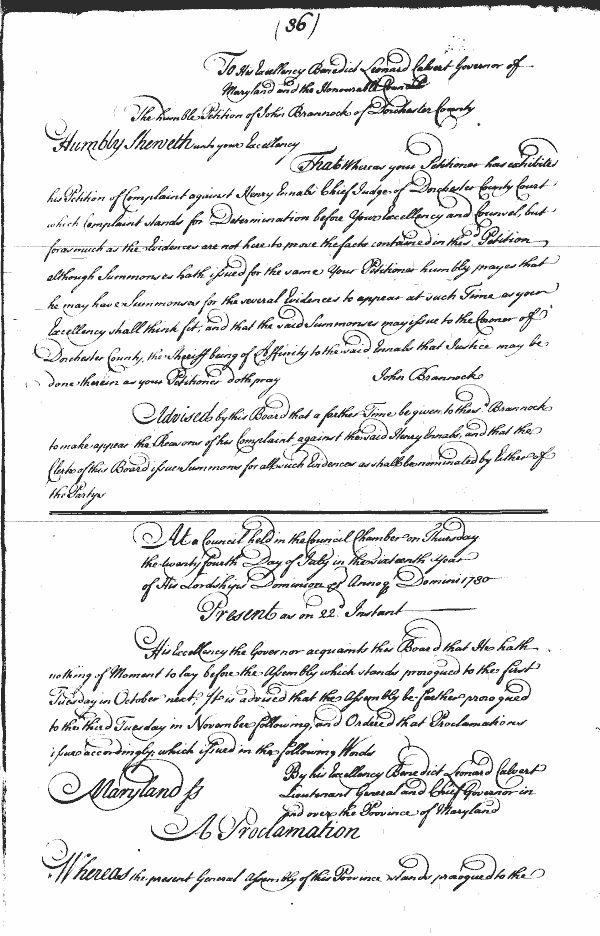 (36)
To His Excellency Benedict Leonard Calvert Governor of
Maryland and the Honourable Council
The humble Petition of John Brannock of Dorchester County
Humbly Sheweth unto your Excellency
That Whereas your Petitioner has exhibited
his Petition of Complaint against Henry Ennalls Chief Judge of Dorchester County Court
which Complaint stands for Determination before Your Excellency and Councel, but
forasmuch as the Evidences are not here to prove the facts contained in the sd Petition
although Summonses hath issued for the same Your Petitioner humbly prayes that
he may have Summonses for the several Evidences to appear at such Time as your
Excellency shall think fit, and that the said Summonses may issue to the Coroner of
Dorchester County, the Sheriff being of Affinity to the said Ennals that Justice may be
done therein as your Petitioner doth pray John Brannock
Advised by this Board that a farther Time be given to the sd Brannock
to make appear the Reasons of his Complaint against the said Henry Ennals, and that the
Clerk of this Board issue Summons for all such Evidences as shall be nominated by Either of
the Partys
At a Council held in the Council Chamber on Thursday
the twenty fourth Day of July in the sixteenth Year
of His Lordships Dominion &c Annoq Domini 1730
Present as on 22d Instant
His Excellency the Governor acquaints this Board that He hath
nothing of Moment to lay before the Assembly which stands prorogued to the first
Tuesday in October next, It is advised that the Assembly be farther prorogued
to the third Tuesday in November following, and Ordered that Proclamations
issue accordingly which issued in the following Words
By his Excellency Benedict Leonard Calvert
Maryland ss Lieutenant General and Chief Governor in
and over the Province of Maryland
A Proclamation
Whereas the present General Assembly of this Province stands prorogued to the